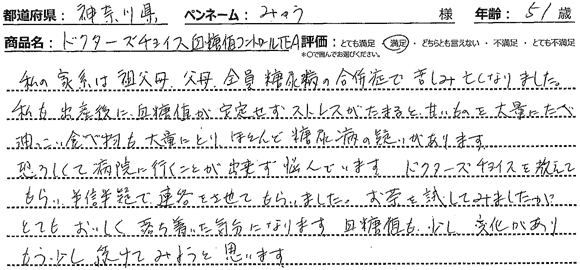 都道府県： 神奈川県 ペンネーム： みゅう 様 年齢： 51 歳
商品名： ドクターズチョイス 血糖値コントロールTEA 評価： とても満足 ・ 満足 ・ どちらとも言えない ・ 不満足 ・ とても不満足
*○で囲んでお選びください。
私の家系は祖父母、父母、全員糖尿病の合併症で苦しみ亡くなりました。
私も出産後に血糖値が安定せずストレスがたまると、甘いものを大量にたべ
油っこい食べ物も大量にとり、ほとんど糖尿病の疑いがあります。
恐ろしくて病院に行くことが出来ず悩んでいます ドクターズチョイスを教えて
もらい、半信半疑で連絡をさせてもらいました。お茶を試してみましたが
とてもおいしく落ち着いた気分になります 血糖値も少し変化があり
もう少し続けてみようと思います